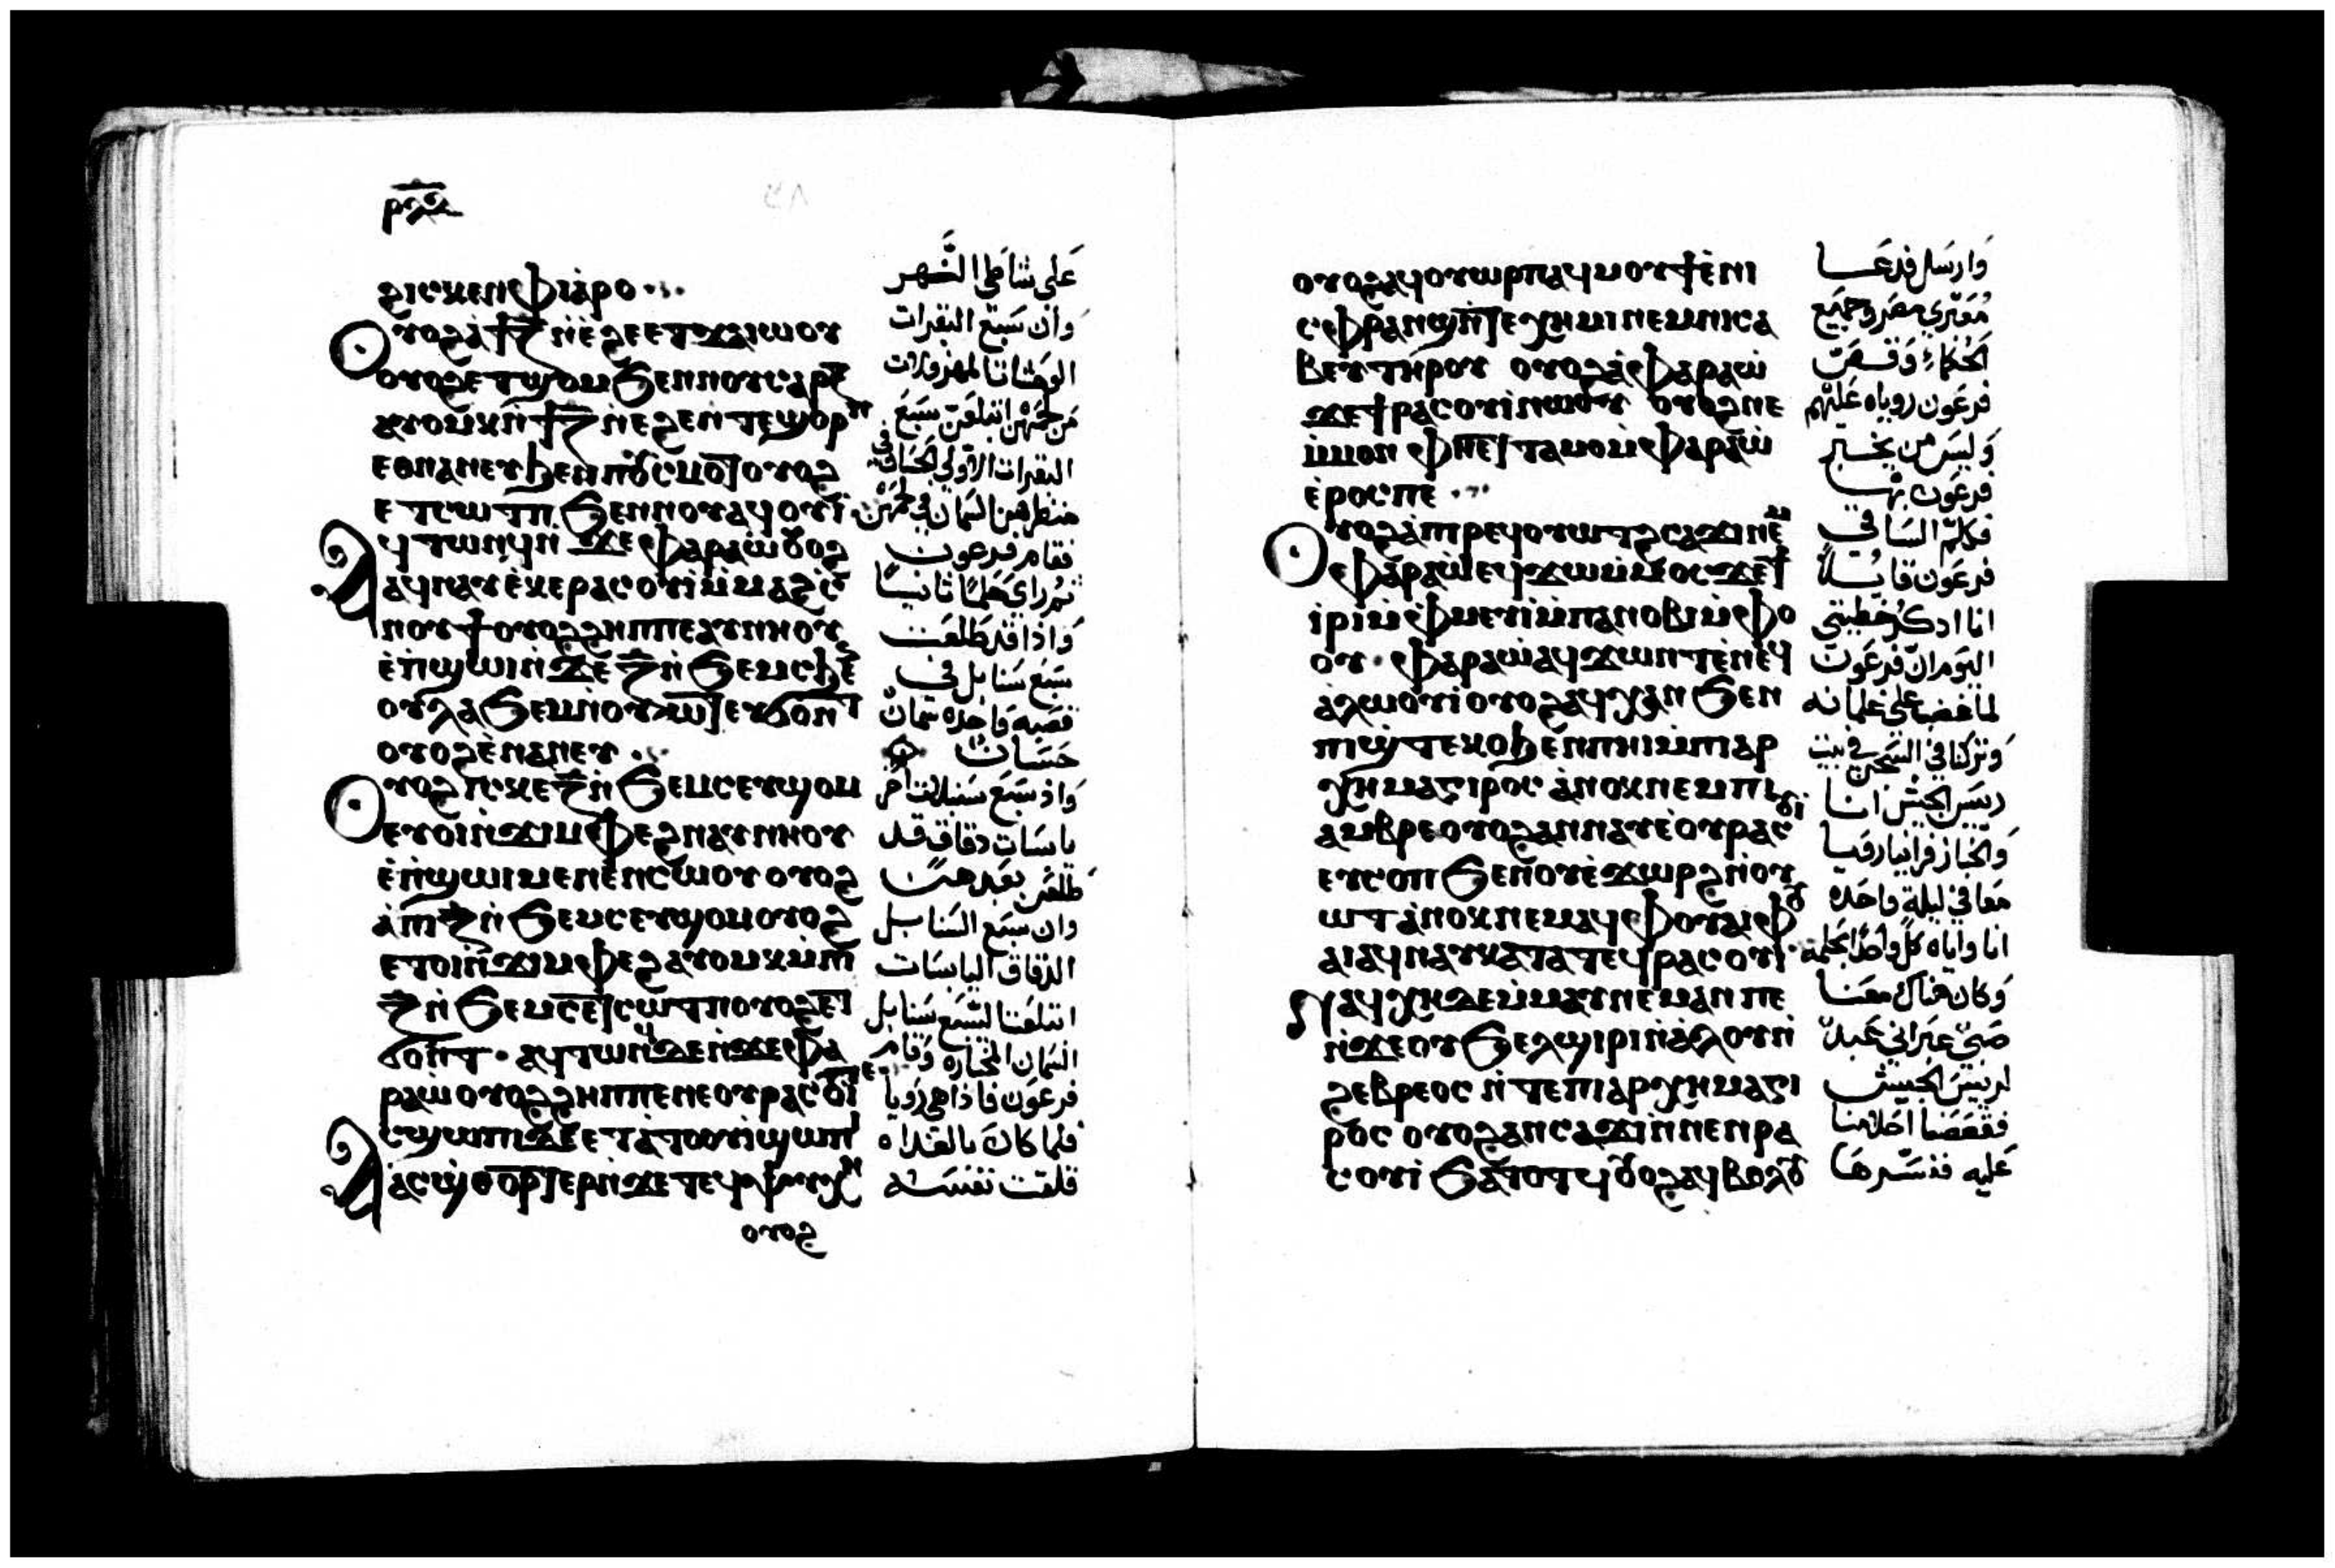 ⲣⲗ̅ⲍ̅
ϩⲓⲥⲕⲉⲛ ⲫⲓⲁⲣⲟ
ⲟⲩⲟϩ ⲁ̀ϯⲍ̅ ⲛ̀ⲉ̀ϩⲉ ⲉⲧϫⲁⲓⲱⲟⲩ
ⲟⲩⲟϩ ⲉⲧϣⲟⲙ ϧⲉⲛ ⲛⲟⲩⲥⲁⲣⲝ
ⲁⲩⲟⲩⲙⲕ ⲛ̀ϯⲍ̅ ⲛ̀ⲉϩⲉ ⲛ̀ⲧⲉ ϣⲟⲣⲡ
ⲉⲑⲛⲁⲛⲉⲩ ϧⲉⲛ ⲡⲟⲩⲥⲙⲟⲧ ⲟⲩⲟϩ
ⲉⲧⲥⲱⲧⲡ ϧⲉⲛ ⲛⲟⲩⲁϥⲟⲩⲓ̀
ⲁϥⲧⲱⲛϥ ⲛ̀ϫⲉ ⲫⲁⲣⲁⲱ̀ ⲟⲩⲟϩ
ⲁϥⲛⲁⲩ ⲉ̀ⲕⲉⲣⲁⲥⲟⲩⲓ̀ ⲙ̀ⲙⲁϩⲥ̅
ⲛⲟⲩϯ ⲟⲩⲟϩ ϩⲏⲡⲡⲉ ⲁⲩⲛⲏⲟⲩ
ⲉ̀ⲡ̀ϣⲱⲓ ⲛ̀ϫⲉ ⲍ̅ ⲛ̀ϧⲉⲙⲥ ϧⲉⲛ
ⲟⲩⲗⲁϧⲉⲙ ⲛ̀ⲟⲩⲱⲧ ⲉⲩⲥⲟⲧⲡ
ⲟⲩⲟϩ ⲉ̀ⲛⲁⲛⲉⲩ
ⲟⲩⲟϩ ⲓⲥ ⲕⲉ ⲍ̅ ⲛ̀ϧⲉⲙⲥ ⲉⲩϣⲟⲙ
ⲉⲩⲟⲓ ⲛ̀ϫⲓⲙⲫⲉϩ ⲛⲁⲩⲛⲏⲟⲩ
ⲉ̀ⲡ̀ϣⲱⲓ ⲙⲉⲛⲉⲛⲥⲱⲟⲩ ⲟⲩⲟϩ
ⲁ̀ ϯⲍ̅ ⲛ̀ϧⲉⲙⲥ ⲉⲩϣⲟⲙ ⲟⲩⲟϩ
ⲉⲧⲟⲓ ⲛ̀ϫⲓⲙⲫⲉϩ ⲁⲩⲟⲩⲙⲕ ⲙ̀ⲡⲓ
ⲍ̅ ⲛ̀ϧⲉⲙⲥ ⲉⲧⲥⲱⲧⲡ ⲟⲩⲟϩ ⲉⲧ
ⲥⲟⲛⲧ ⲁϥⲧⲱⲛϥ ⲇⲉ ⲛ̀ϫⲉ ⲫⲁ
ⲣⲁⲱ̀ ⲟⲩⲟϩ ϩⲏⲡⲡⲉ ⲛⲉ ⲟⲩⲣⲁⲥⲟⲩⲓ ⲧⲉ
ⲉⲧⲁ ⲧⲟⲟⲩⲓ̀ ϣⲱⲡⲓ
ⲁⲥϣ̀ⲑⲟⲣⲧⲉⲣ ⲛ̀ϫⲉ ⲧⲉϥⲯⲩⲭⲏ
ⲟⲩⲟϩ
عَلى شاطى النهر
وان سَبع البقرات
من لحمهن ابتلعن سَبع
البقرات الاولى الحسان فى
منظرهن السمان فى لحمهن
فقام فرعون
ثم راى حلما ثانيا
واذا قد طلعت
سَبع سَنابل فى
قصبه واحده سمان
حَسَنات
واذ سَبع سَنبلات اخر
يابسَات دقاق قد
طلعن بعدهن
وان سَبع السَنابل
الدقاق اليابسَات
ابتلعن السَبع سَنابل
السمان المختاره وقام
فرعَون فاذا هى رويا
فلما كان بالغداه
قلقت نفسَه
ⲟⲩⲟϩ ⲁϥⲟⲩⲱⲣⲡ ⲁϥⲙⲟⲩϯ ⲉ̀ⲛⲓ
ⲥⲫⲣⲁⲛϣ ⲛ̀ⲧⲉ ⲭⲏⲙⲓ ⲛⲉⲙ ⲛⲓⲥⲁ
ⲃⲉⲩ ⲧⲏⲣⲟⲩ ⲟⲩⲟϩ ⲁ̀ ⲫⲁⲣⲁⲱ̀
ϫⲉ ϯⲣⲁⲥⲟⲩⲓ̀ ⲛⲱⲟⲩ ⲟⲩⲟϩ ⲛⲉ
ⲙ̀ⲙⲟⲛ ⲫⲏ ⲉⲧⲧⲁⲙⲟ ⲙ̀ⲫⲁⲣⲁⲱ̀
ⲉ̀ⲣⲟⲥ ⲡⲉ
ⲟⲩⲟϩ ⲁ̀ ⲡⲓⲣⲉϥⲟⲩⲱⲧϩ ⲥⲁϫⲓ ⲛⲉⲙ
ⲫⲁⲣⲁⲱ̀ ⲉϥϫⲱ ⲙ̀ⲙⲟⲥ ϫⲉ ϯ
ⲓ̀ⲣⲓ ⲙ̀ⲫⲙⲉⲩⲓ̀ ⲙ̀ⲡⲁⲛⲟⲃⲓ ⲙ̀ⲫⲟ
ⲟⲩ ⲫⲁⲣⲁⲱ̀ ⲁϥϫⲱⲛⲧ ⲉ̀ⲛⲉϥ
ⲁ̀ⲗⲱⲟⲩⲓ̀ ⲟⲩⲟϩ ⲁϥⲭⲁⲛ ϧⲉⲛ
ⲡⲓϣ̀ⲧⲉⲕⲟ ϧⲉⲛ ⲡⲏⲓ ⲙ̀ⲡⲓⲁⲣ
ⲭⲏⲙⲁⲅⲓⲣⲟⲥ ⲁ̀ⲛⲟⲕ ⲛⲉⲙ ⲡⲓ
ⲁⲙⲣⲉ ⲟⲩⲟϩ ⲁⲛⲛⲁⲩ ⲉ̀ⲟⲩⲣⲁⲥⲟⲩⲓ
ⲉⲩⲥⲟⲡ ϧⲉⲛ ⲟⲩⲉ̀ϫⲱⲣϩ ⲛ̀ⲟⲩ
ⲱⲧ ⲁ̀ⲛⲟⲕ ⲛⲉⲙⲁϥ ⲫⲟⲩⲁⲓ ⲫⲟⲩ
ⲁⲓ ⲁϥⲛⲁⲩ ⲕⲁⲧⲁ ⲧⲉϥⲣⲁⲥⲟⲩⲓ
ⲛⲁϥⲭⲏ ⲇⲉ ⲙ̀ⲙⲁⲩ ⲛⲉⲙⲁⲛ ⲡⲉ
ⲛ̀ϫⲉ ⲟⲩϧⲉⲗϣⲓⲣⲓ ⲛ̀ⲁ̀ⲗⲟⲩ ⲛ̀
ϩⲉⲃⲣⲉⲟⲥ ⲛ̀ⲧⲉ ⲡⲓⲁⲣⲭⲏⲙⲁⲅⲓ
ⲣⲟⲥ ⲟⲩⲟϩ ⲁⲛⲥⲁϫⲓ ⲛ̀ⲛⲉⲛⲣⲁ
ⲥⲟⲩⲓ̀ ϧⲁⲧⲟⲧϥ ⲟⲩⲟϩ ⲁϥⲃⲟⲗⲟⲩ
وارسَل فدعَا
مفسّرى مصر وجميع
الحكماء وقص
فرعَون روياه عَليهم
وليسَ من يخبر
فرعَون بها
فكلم السَاقى
فرعَون قايلاً
انا اذكر خطيتى
اليوم ان فرعَون
لما غضب على غلمانه
وتركنا فى السَجن فى بيت
ريسَ الجيش انا
والخباز فراينا رويا
معَا فى ليلة واحَده
انا واياه كل واحد كحلمه
وكان هناك معَنا
صَبى عبرانى عَبد
لرييسَ الجيش
فقصَصَنا احَلامنا
عَليه ففسّرها